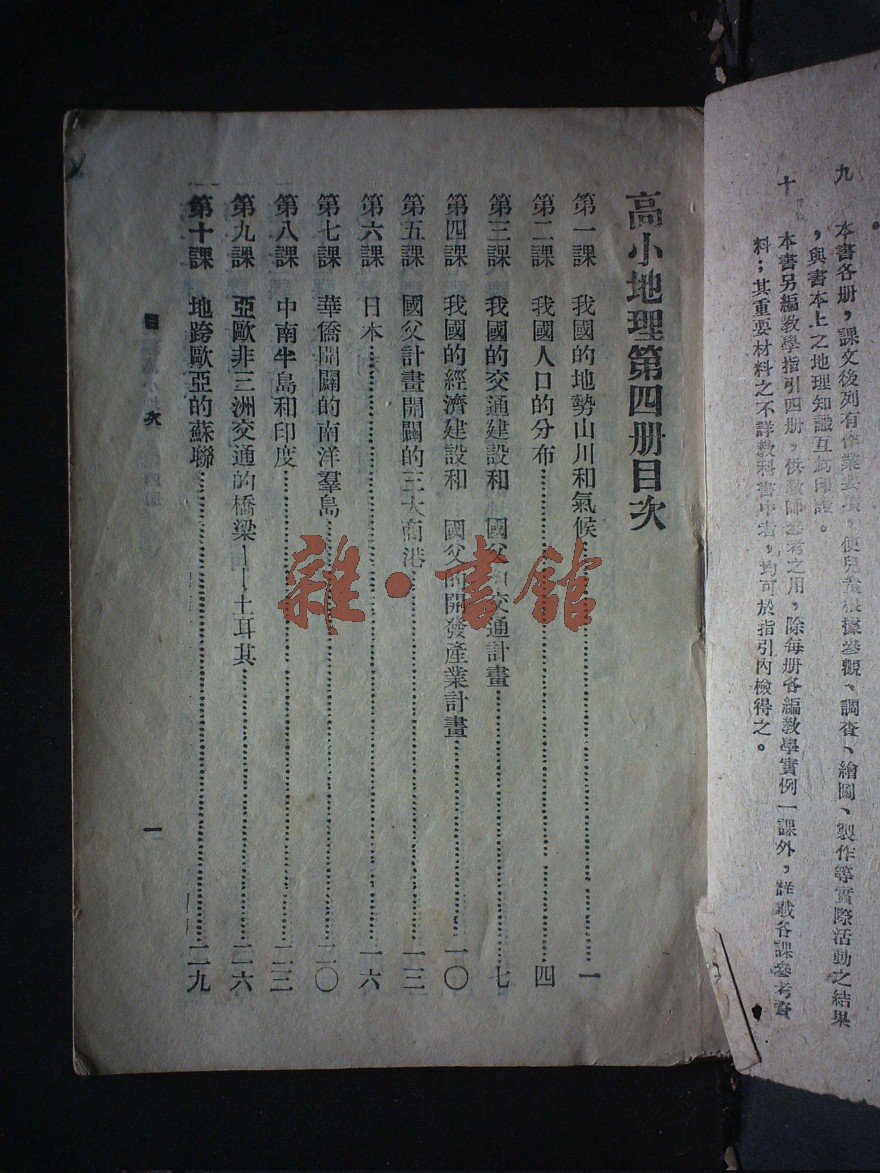 九　本書各册，課文後列有作業要項，使兒童根據參觀、調查、繪圖、製作等實際活動之結果
，與書本上之地理知識互爲印證。
十　本書另編教學指引四册，供教師參考之用，除每册各編教學實例一課外，詳載各課參考資
料；其重要材料之不詳教科書中者，均可於指引內檢得之。
高小地理第四册目次
第一課　我國的地勢山川和氣候……一
第二課　我國人口的分布……四
第三課　我國的交通建設和　國父的交通計畫……七
第四課　我國的經濟建設和　國父的開發產業計畫……一〇
第五課　國父計畫開闢的三大商港……一三
第六課　日本……一六
第七課　華僑開闢的南洋羣島……二〇
第八課　中南半島和印度……二三
第九課　亞歐非三洲交通的橋梁——土耳其……二六
第十課　地跨歐亞的蘇聯……二九
目　次
一
雜·書館